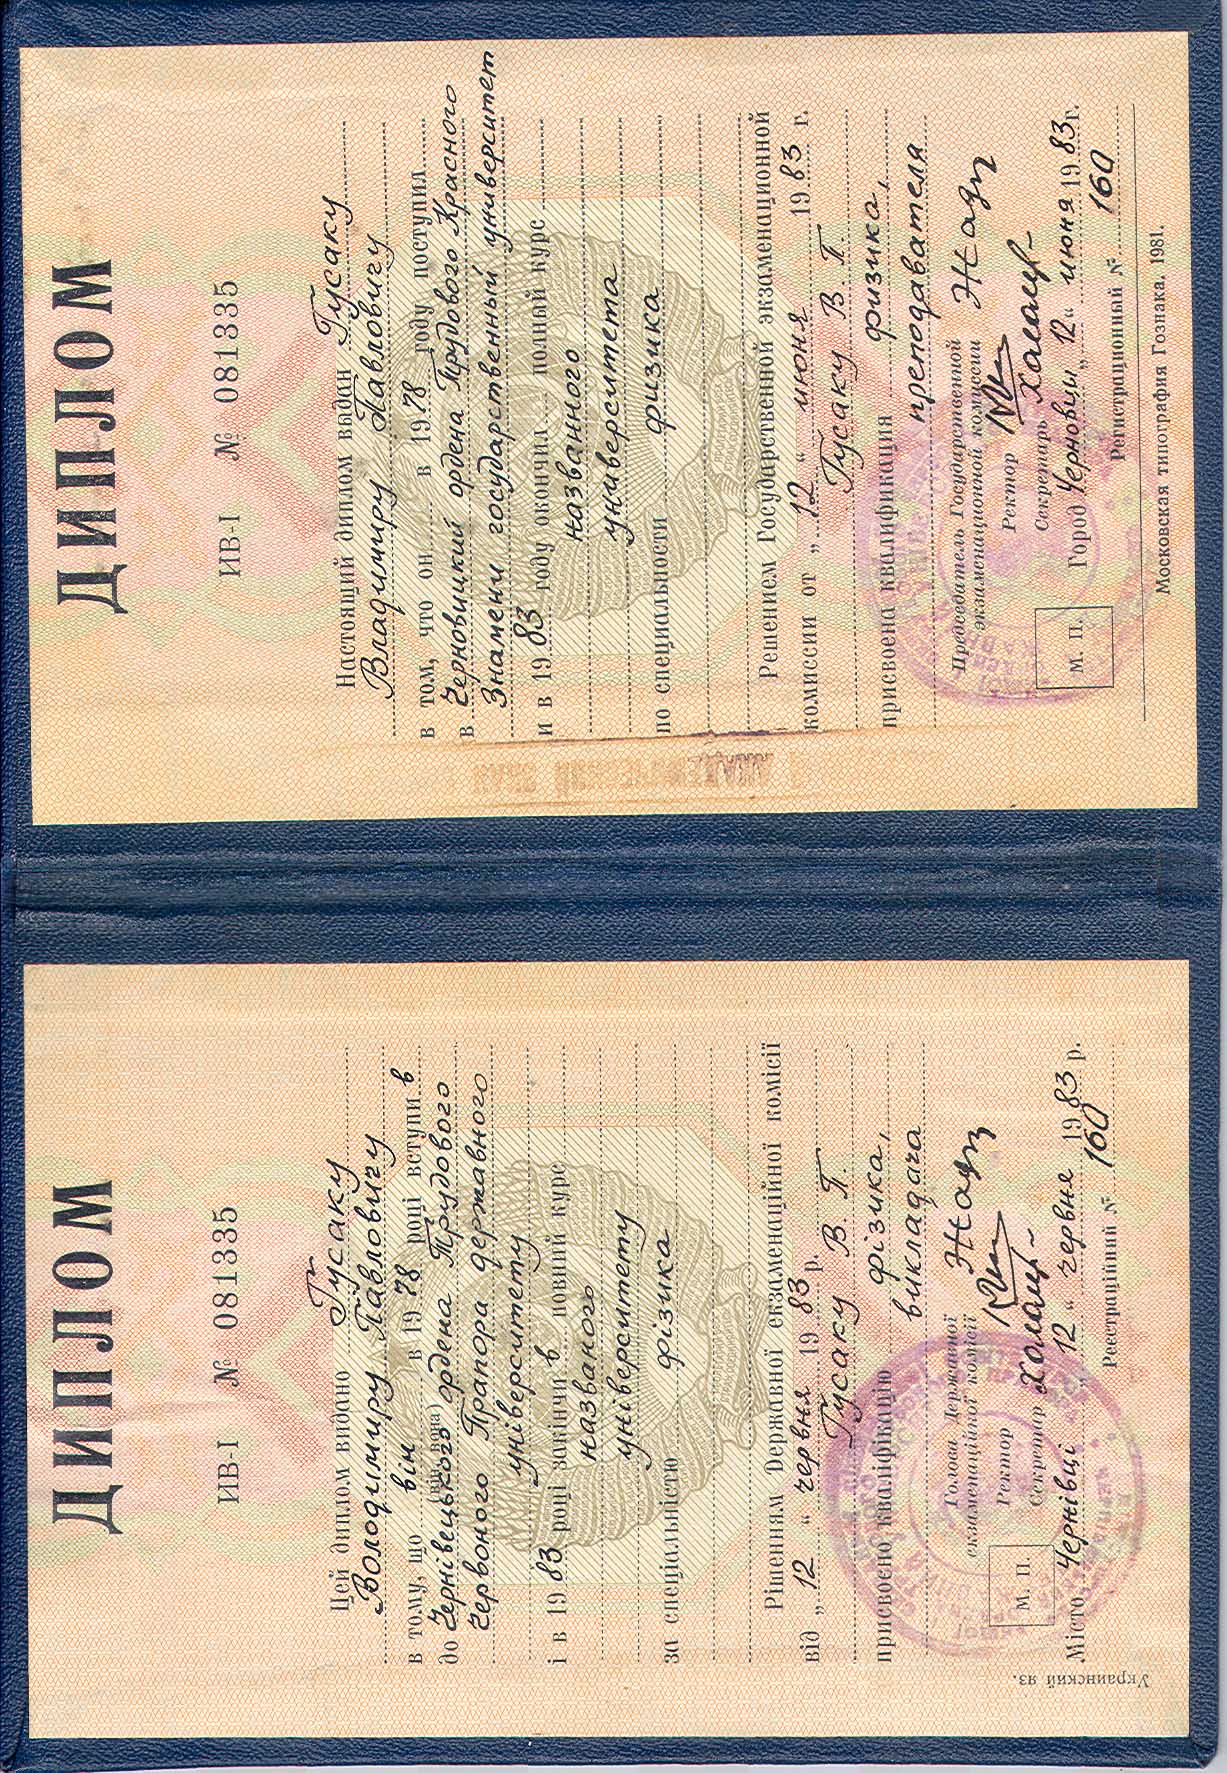 ДИПЛОМ
ИВ-I № 081335
Цей диплом видано Гусаку
Володимиру Павловичу
в тому, що він в 1978 році вступив
(він, вона)
до Чернівецького ордена Трудового
Червоного Прапора державного
університету
і в 1983 році закінчив повний курс
названого
університету
за спеціальністю фізика
Рішенням Державної екзаменаційної комісії
від „12“ червня 1983 р.
Гусаку В. П.
присвоєно кваліфікацію фізика,
викладача
Голова Державної
екзаменаційної комісії
Ректор
Секретар
М. П.
Місто Чернівці „12“ червня 1983 р.
Реєстраційний № 160
Украинский яз.
ДИПЛОМ
ИВ-I № 081335
Настоящий диплом выдан Гусаку
Владимиру Павловичу
в том, что он в 1978 году поступил
в Черновицкий ордена Трудового Красного
Знамени государственный университет
и в 1983 году окончил полный курс
названного
университета
по специальности физика
Решением Государственной экзаменационной
комиссии от „12“ июня 1983 г.
Гусаку В. П.
присвоена квалификация физика,
преподавателя
Председатель Государственной
экзаменационной комиссии
Ректор
Секретарь
М. П.
Город Черновцы „12“ июня 1983 г.
Регистрационный № 160
Московская типография Гознака. 1981.